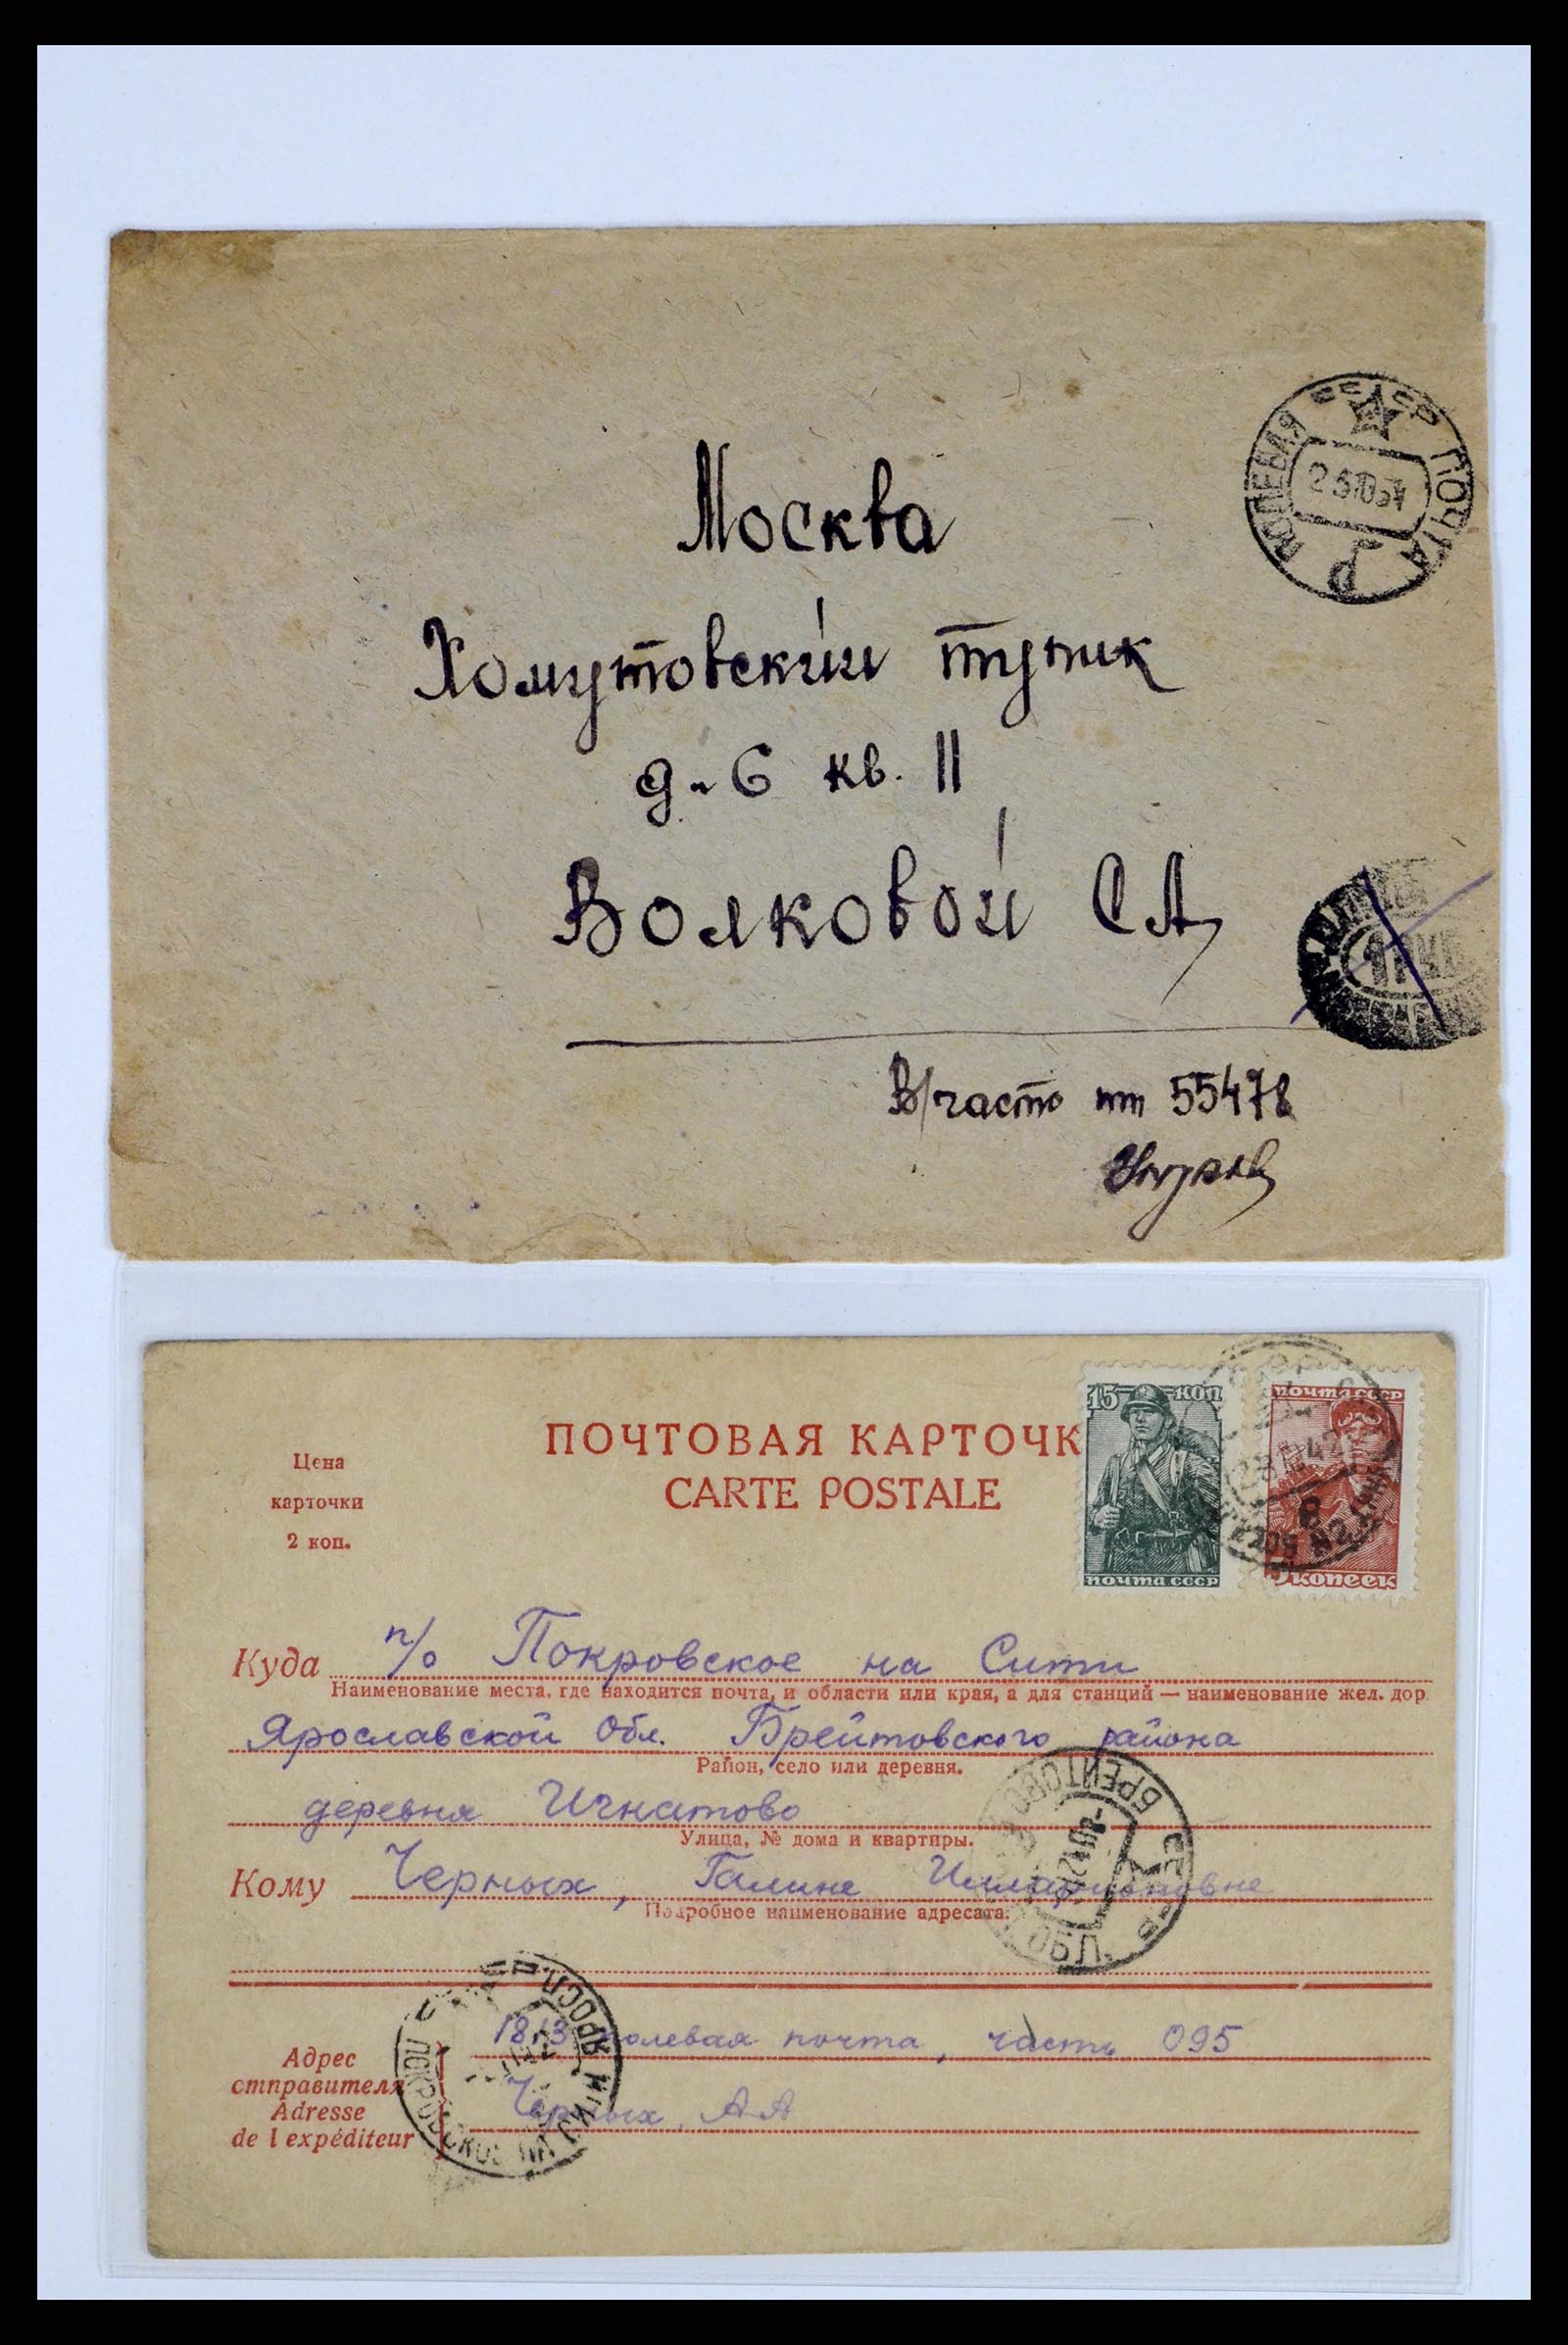 Москва
Хомутовский тупик
д. 6 кв. 11
Волковой С А
В/часть пп 55478
ПОЛЕВАЯ ПОЧТА
ПОЧТОВАЯ КАРТОЧК
CARTE POSTALE
Цена
карточки
2 коп.
15 КОП
ПОЧТА СССР
ПОЧТА СССР
5 КОПЕЕК
Куда п/о Покровское на Сити
Наименование места, где находится почта, и области или края, а для станций — наименование жел. дор.
Ярославской Обл. Брейтовского района
Район, село или деревня.
деревня Игнатово
Улица, № дома и квартиры.
Кому Черных, Галине Илларионовне
Подробное наименование адресата.
БРЕЙТОВО
ЯРОСЛ
ПОКРОВСКОЕ НА
Адрес
отправителя
Adresse
de l'expéditeur
1813 полевая почта, часть 095
Черных, А А